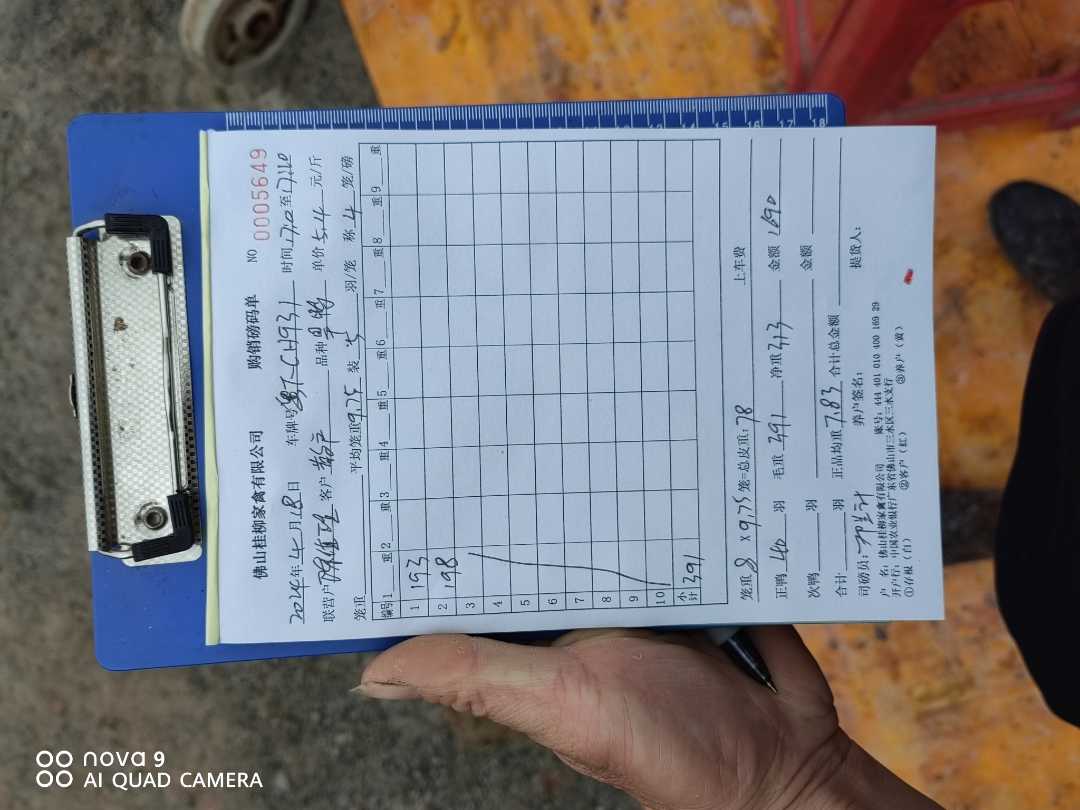 佛山桂柳家禽有限公司 购销磅码单 NO 0005649
2024年4月18日 车牌号 CH931 时间17:10至17:20
联营户 客户 品种 单价5.4元/斤
笼重 平均笼重9.75 装5羽/笼 称4笼/磅
编号 1 重 2 重 3 重 4 重 5 重 6 重 7 重 8 重 9 重
1 193
2 198
3
4
5
6
7
8
9
10
小计 391
笼重8×9.75笼=总皮重:78 上车费
正鸭40羽 毛重391 净重313 金额1690
次鸭 羽 金额
合计 羽 正品均重7.83 合计总金额
司磅员: 养户签名: 提货人:
户 名:佛山桂柳家禽有限公司 账号:444 401 010 400 169 29
开户行:中国农业银行广东省佛山市三水区三水支行
①存根(白) ②客户(红) ③养户(黄)
18
17
16
15
14
13
nova 9
AI QUAD CAMERA